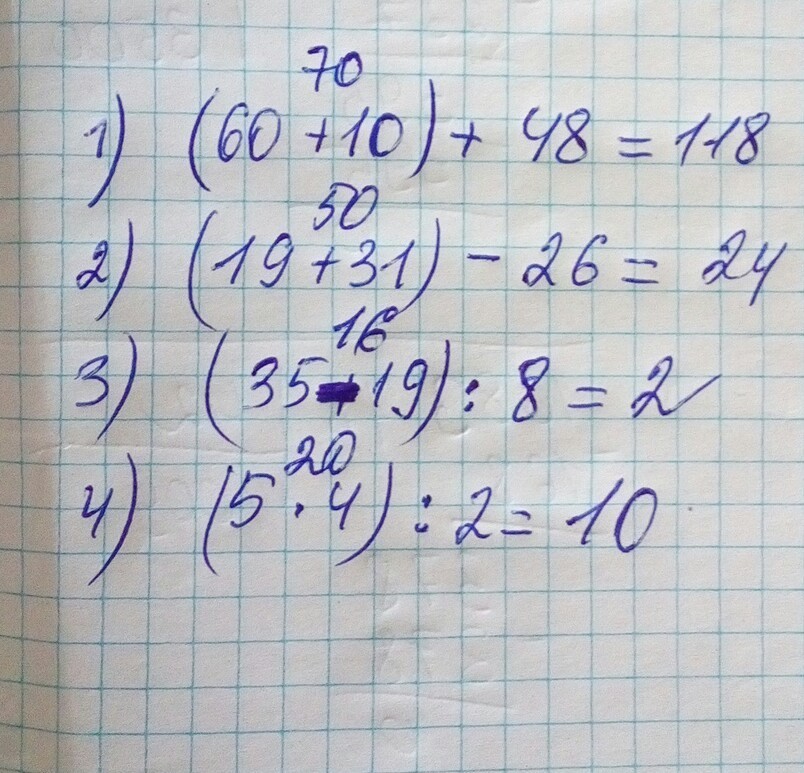 70
1) (60 + 10) + 48 = 118
50
2) (19 + 31) - 26 = 24
16
3) (35 - 19) : 8 = 2
20
4) (5 · 4) : 2 = 10